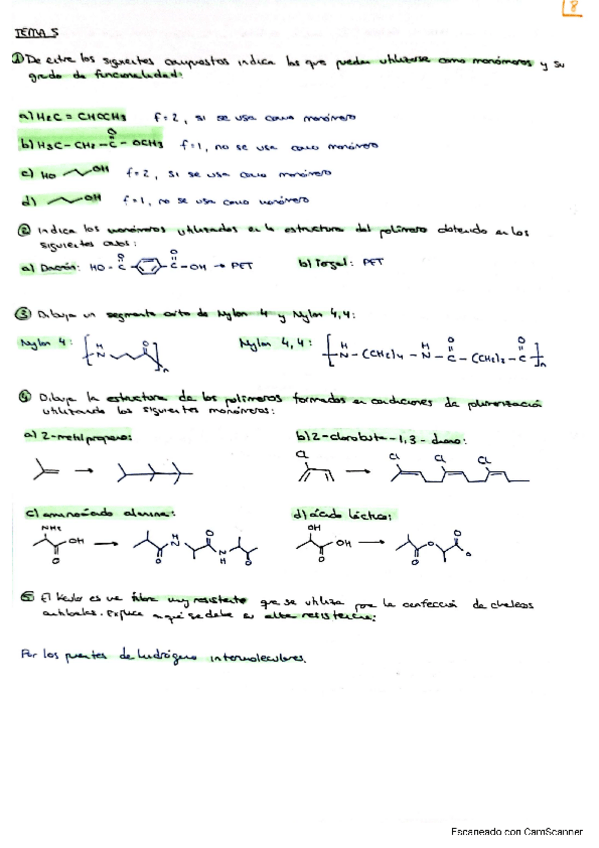 8
TEMA 5
① De entre los siguientes compuestos indica los que pueden utilizarse como monómeros y su
grado de funcionalidad:
a) H2C = CHOCH3 f=2, si se usa como monómero
O
b) H3C – CH2 – C – OCH3 f=1, no se usa como monómero
c) HO OH f=2, si se usa como monómero
d) OH f=1, no se usa como monómero
② Indica los monómeros utilizados en la estructura del polímero obtenido en los
siguientes casos:
a) Dacrón: HO - C C - OH → PET b) Tergal: PET
O O
③ Dibuja un segmento corto de Nylon 4 y Nylon 4,4:
Nylon 4: [ N H O ]n Nylon 4,4: [ N H – (CH2)4 – N H – C O – (CH2)2 – C O ]n
④ Dibuja la estructura de los polímeros formados en condiciones de polimerización
utilizando los siguientes monómeros:
a) 2-metilpropeno: b) 2-clorobuta-1,3-dieno:
→ Cl → Cl Cl Cl
c) aminoácido alanina: d) ácido láctico:
NH2 OH O → O H N O N H O OH OH O → O O O
⑤ El Kevlar es una fibra muy resistente que se utiliza para la confección de chalecos
antibalas. Explica a qué se debe su alta resistencia:
Por los puentes de hidrógeno intermoleculares.
Escaneado con CamScanner